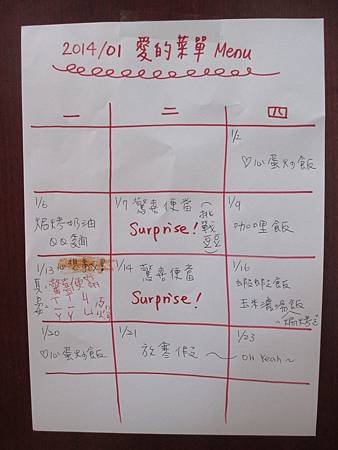 2014/01 愛的菜單 Menu
一 二 四
1/2
♡心蛋炒飯
1/6
焗烤奶油
QQ麵
1/7 驚喜便當
Surprise!
(挑戰豆豆)
1/9
咖哩飯
1/13 心想事成
驚喜便當
1/14 驚喜便當
Surprise!
1/16
蝦蝦飯
玉米濃湯飯
~焗烤
1/20
♡心蛋炒飯
1/21
放寒假
1/23
oh Yeah~